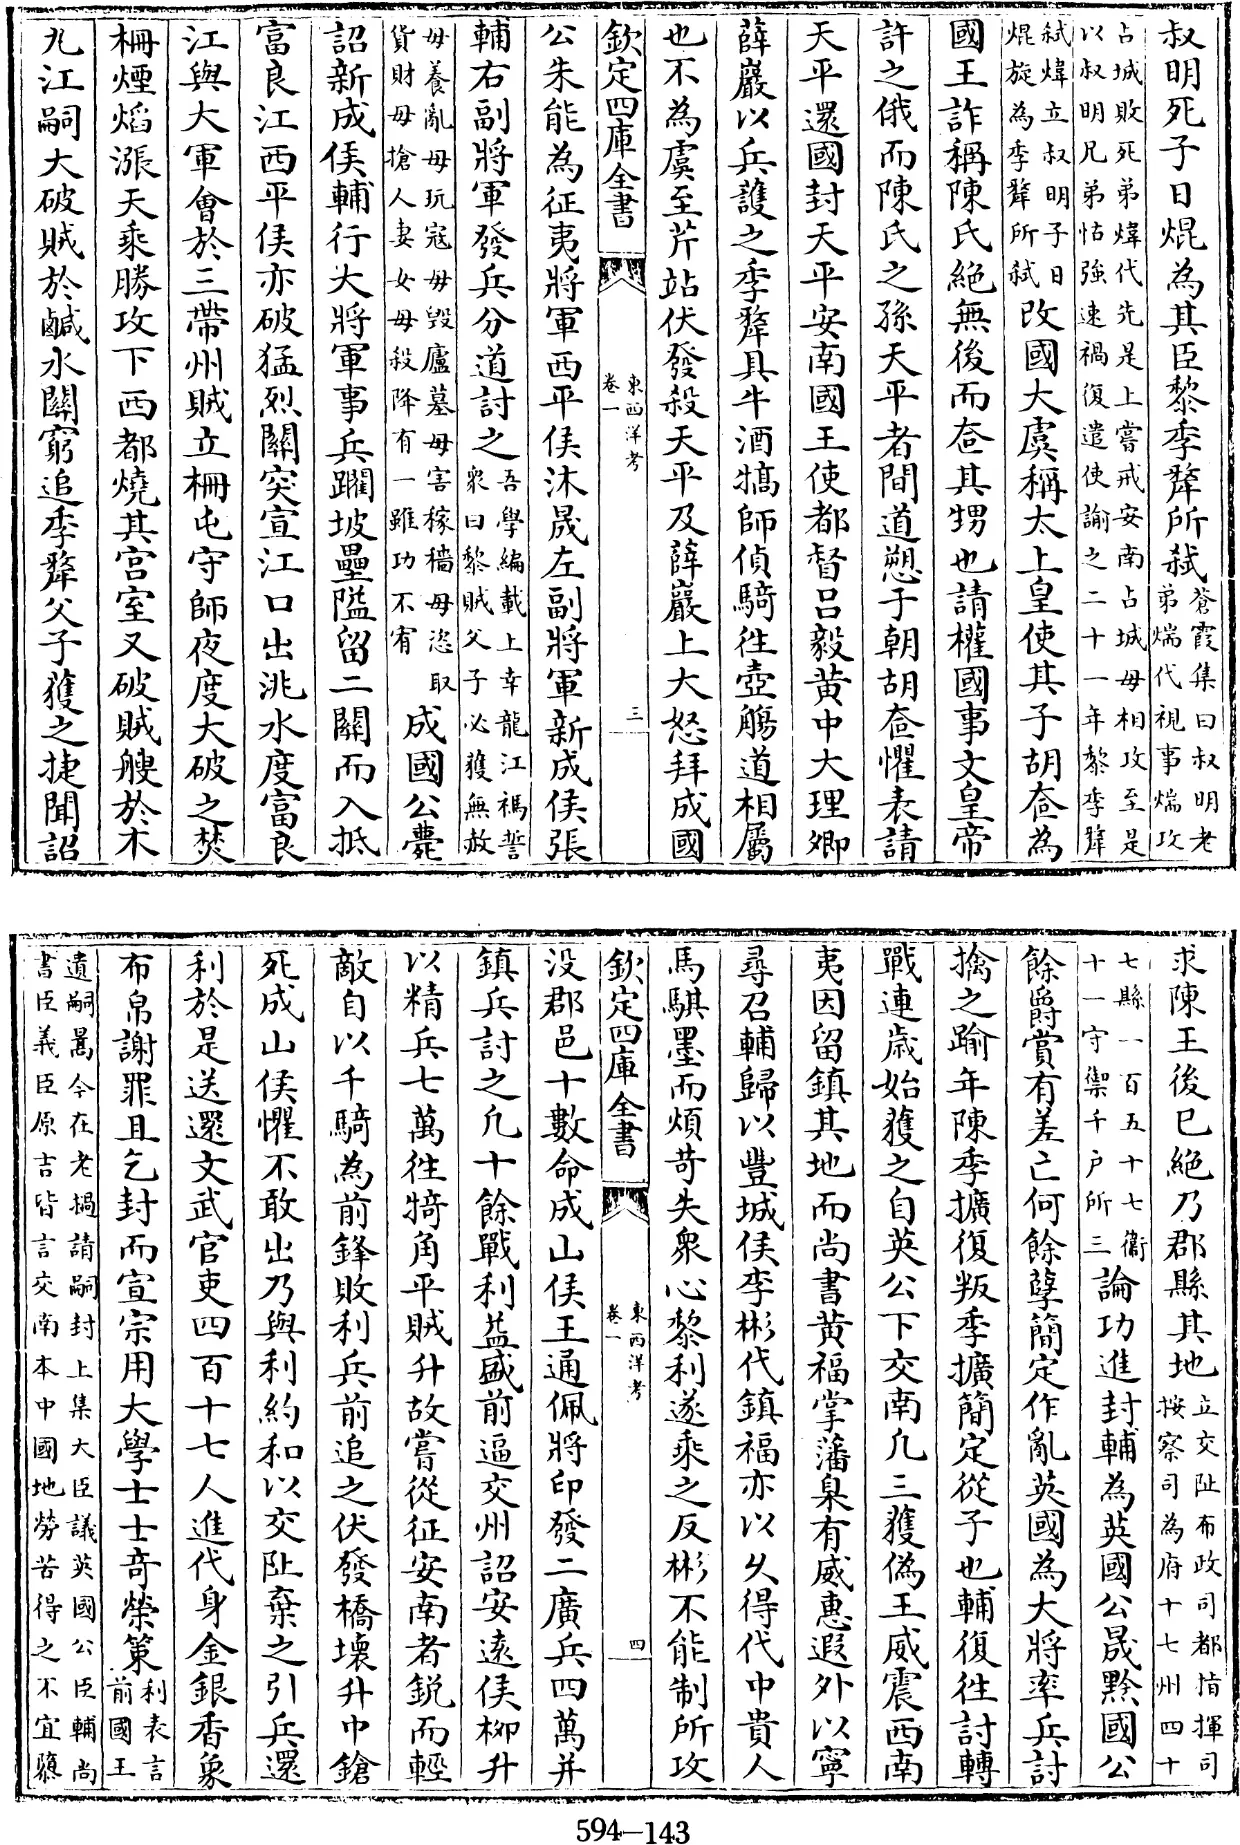 叔明死子日焜為其臣黎季犛所弑蒼霞集曰叔明老弟煓代視事煓攻
占城敗死弟煒代先是上嘗戒安南占城毋相攻至是以叔明兄弟怙強速禍復遣使諭之二十一年黎季犛
弑煒立叔明子日焜旋為季犛所弑改國大虞稱太上皇使其子胡𡗨為
國王詐稱陳氏絶無後而𡗨其甥也請權國事文皇帝
許之俄而陳氏之孫天平者間道愬于朝胡𡗨懼表請
天平還國封天平安南國王使都督呂毅黄中大理卿
薛巖以兵護之季犛具牛酒犒師偵騎徃壺觴道相屬
也不為虞至芹站伏發殺天平及薛巖上大怒拜成國
欽定四庫全書
東西洋考
卷一
三
公朱能為征夷將軍西平侯沐晟左副將軍新成侯張
輔右副將軍發兵分道討之吾學編載上幸龍江禡誓衆曰黎賊父子必獲無赦
毋養亂毋玩冦毋毀廬墓毋害稼穡毋恣取貨財毋搶人妻女毋殺降有一雖功不宥成國公薨
詔新成侯輔行大將軍事兵躝坡壘隘留二關而入抵
富良江西平侯亦破猛烈關突宣江口出洮水度富良
江與大軍會於三帶州賊立柵屯守師夜度大破之焚
柵煙焰漲天乘勝攻下西都燒其宮室又破賊艘於木
九江嗣大破賊於鹹水關窮追季犛父子獲之捷聞詔
求陳王後已絶乃郡縣其地立交阯布政司都指揮司按察司為府十七州四十
七縣一百五十七衞十一守禦千户所三論功進封輔為英國公晟黔國公
餘爵賞有差亡何餘孽簡定作亂英國為大將率兵討
擒之踰年陳季擴復叛季擴簡定從子也輔復徃討轉
戰連歲始獲之自英公下交南凡三獲偽王威震西南
夷因留鎮其地而尚書黄福掌藩臬有威惠遐外以寧
尋召輔歸以豐城侯李彬代鎮福亦以久得代中貴人
馬騏墨而煩苛失衆心黎利遂乘之反彬不能制所攻
欽定四庫全書
東西洋考
卷一
四
没郡邑十數命成山侯王通佩將印發二廣兵四萬并
鎮兵討之凡十餘戰利益盛前逼交州詔安遠侯柳升
以精兵七萬徃犄角平賊升故嘗從征安南者鋭而輕
敵自以千騎為前鋒敗利兵前追之伏發橋壞升中鎗
死成山侯懼不敢出乃與利約和以交阯棄之引兵還
利於是送還文武官吏四百十七人進代身金銀香象
布帛謝罪且乞封而宣宗用大學士士奇榮策利表言前國王
遺嗣暠今在老撾請嗣封上集大臣議英國公臣輔尚書臣義臣原吉皆言交南本中國地勞苦得之不宜隳
594-143